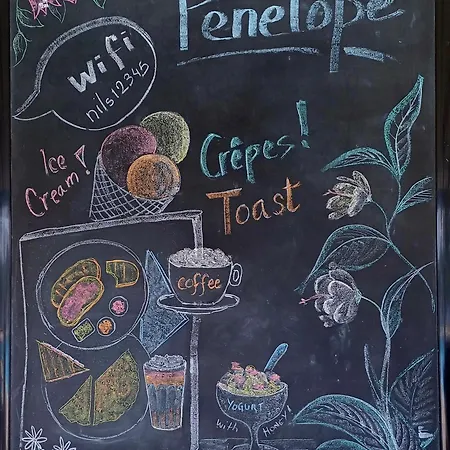 Penelope
wifi
nils12345
Ice
Cream!
Crêpes!
Toast
coffee
YOGURT
with Honey!